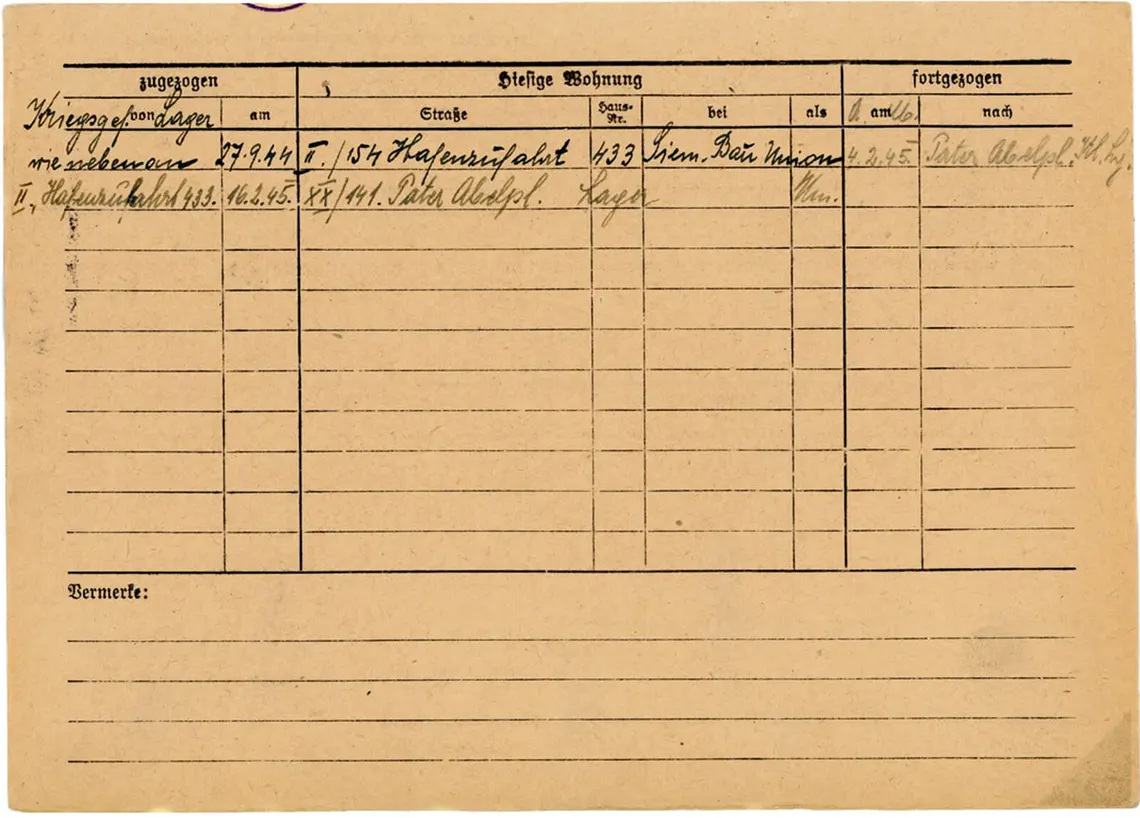 zugezogen Hiesige Wohnung fortgezogen
Kriegsgef. von Lager am Straße Haus-Nr. bei als am nach
wie nebenan 27.9.44 II./154 Hafenzufahrt 433 Siem. Bau Union 4.2.45. Pater Abelpl.
II., Hafenzufahrt 433. 16.2.45. XX/141. Pater Abelpl. Lager
Vermerke: